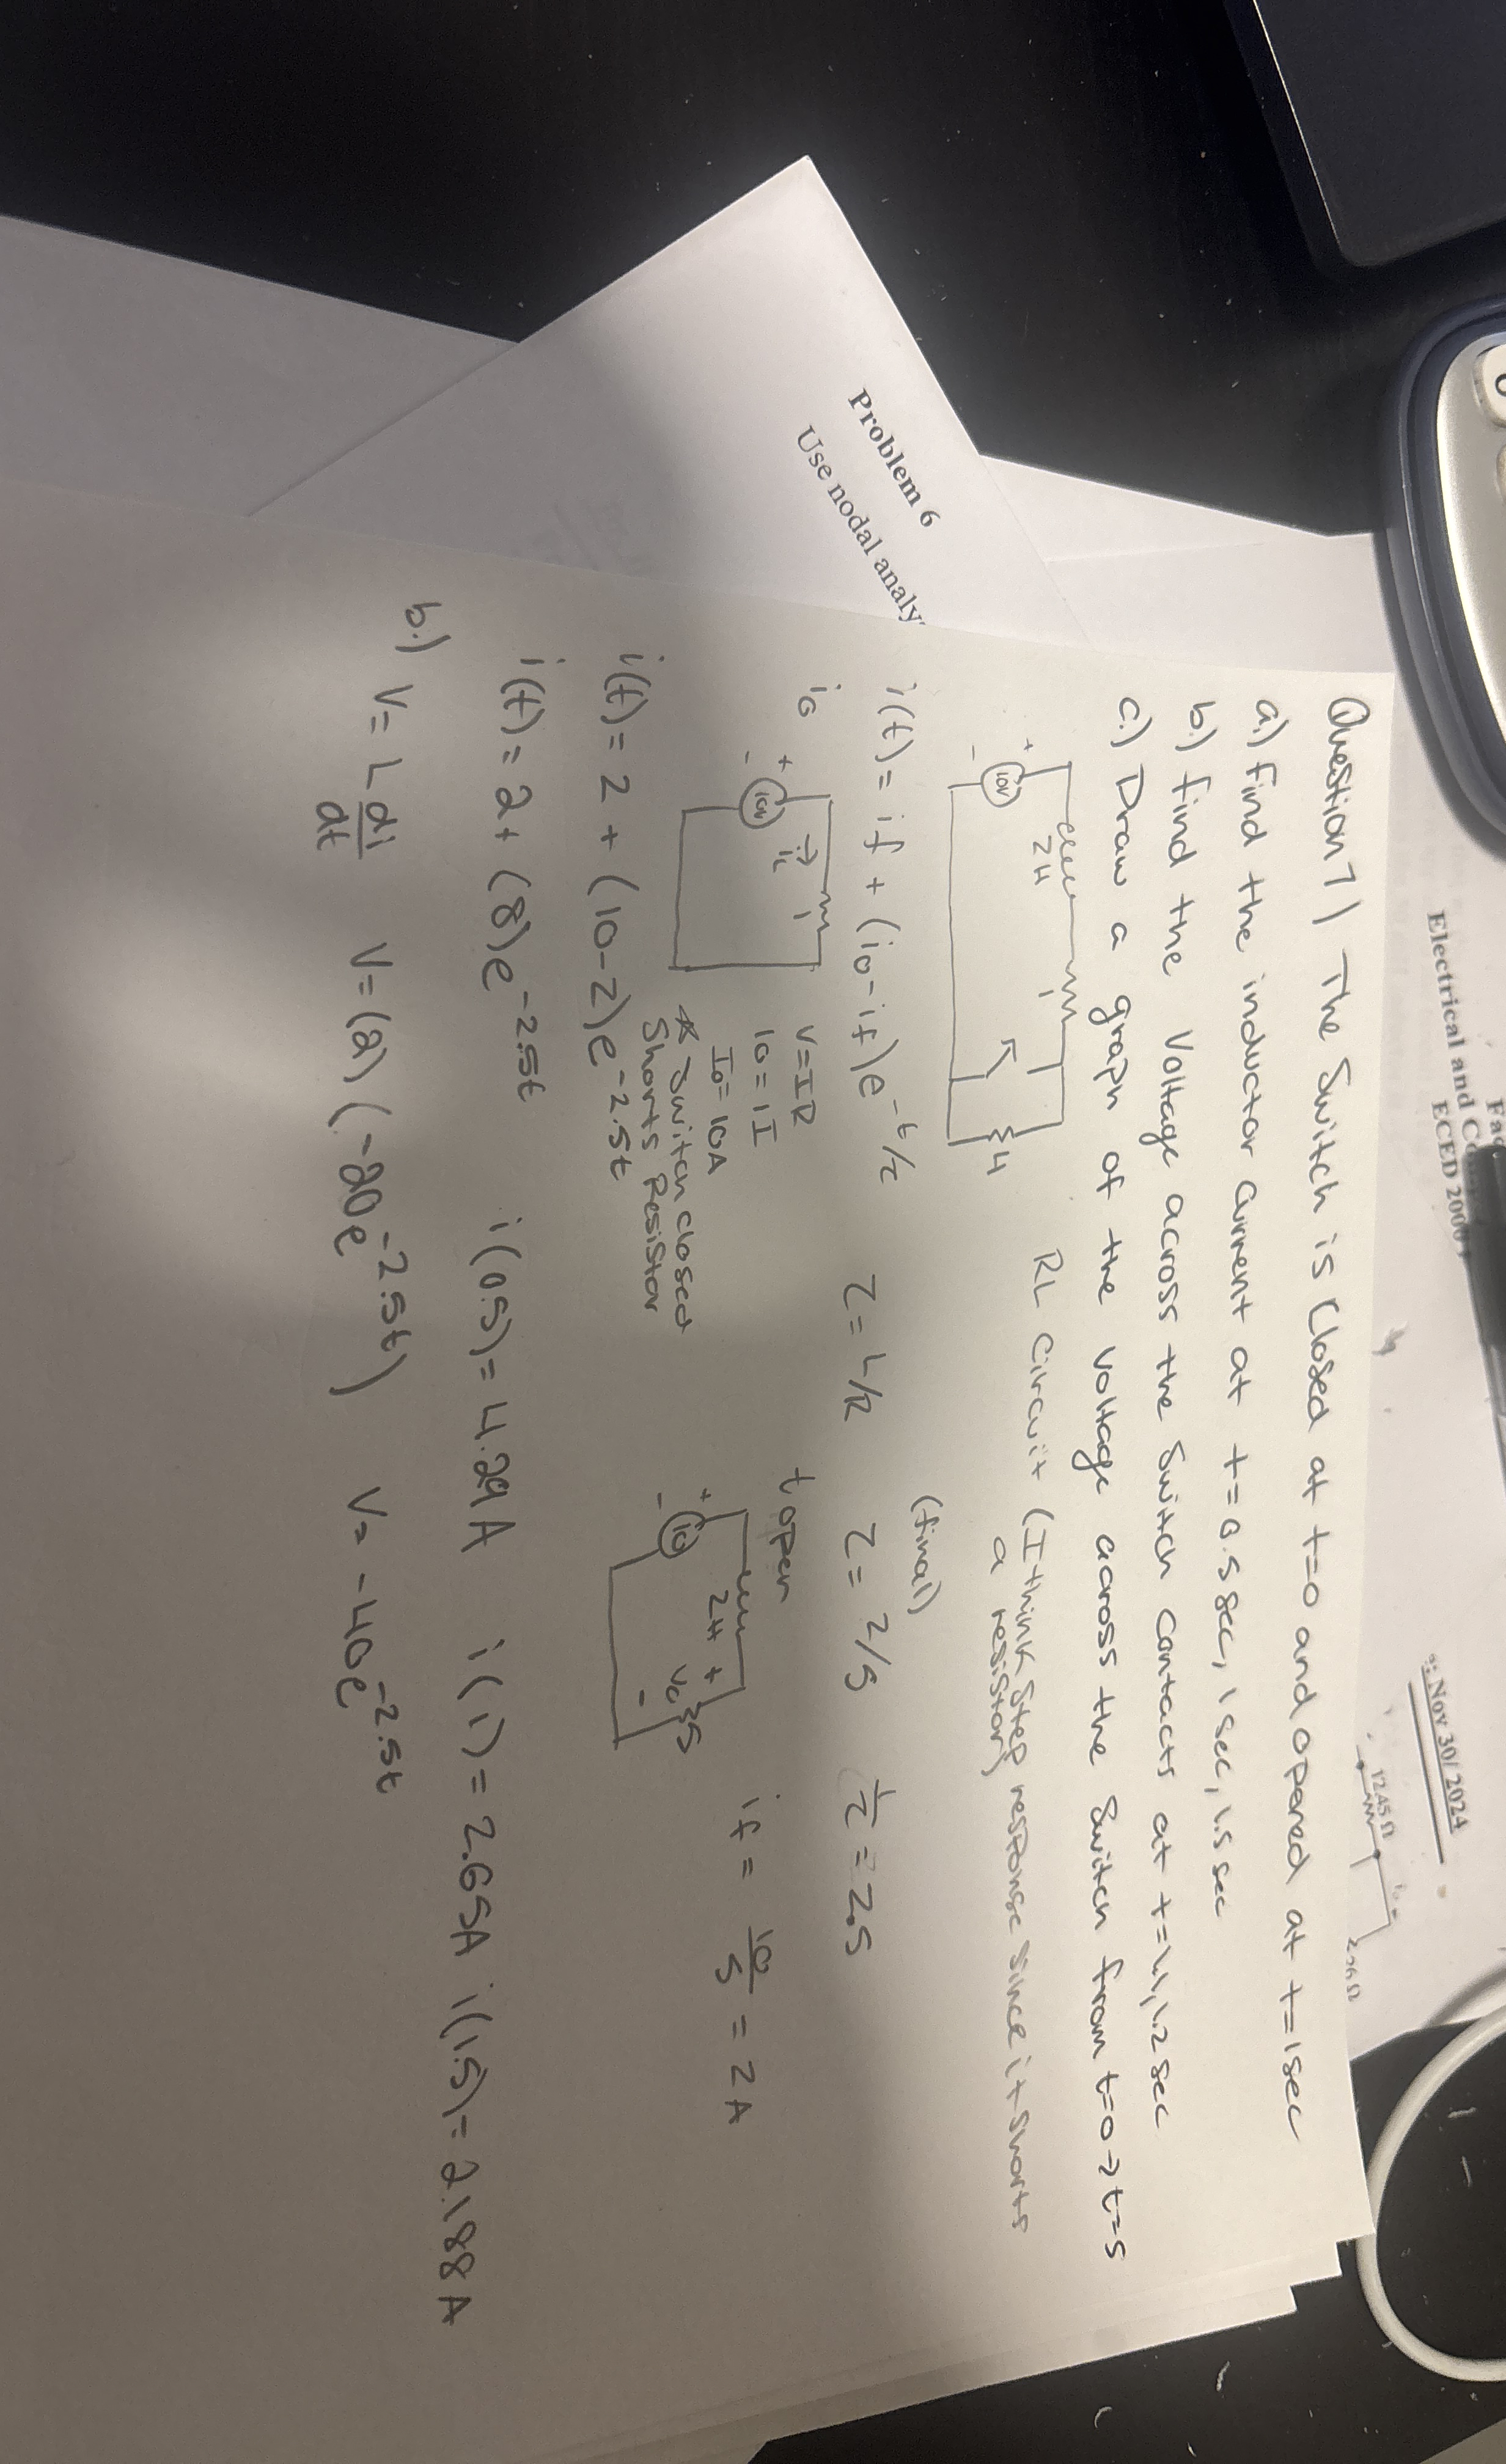 Electrical and
ECED 200
: Nov 30/2024
12.45 Ω
Problem 6
Use nodal analy
Question 7) The Switch is Closed at t=0 and opened at t=1sec
a.) find the inductor current at t=0.5sec, 1sec, 1.5sec
b.) find the Voltage across the Switch contacts at t=1.1, 1.2 sec
c.) Draw a graph of the voltage across the Switch from t=0→t=5
+ 10V - 2H 1 4
RL Circuit (I think Step response since it shorts
a resistor)
(final)
i(t) = if + (io-if)e^-t/τ τ = L/R τ = 2/5 1/τ = 2.5
io + 10V - iL 1
V=IR
10=1I
Io=10A
* Switch closed
Shorts Resistor
t open
+ 10 - 2H + Vc - 5
if = 10/5 = 2A
i(t) = 2 + (10-2)e^-2.5t
i(t) = 2 + (8)e^-2.5t i(0.5) = 4.29A i(1) = 2.65A i(1.5) = 2.188A
b.) V = L di/dt V = (2)(-20e^-2.5t) V = -40e^-2.5t